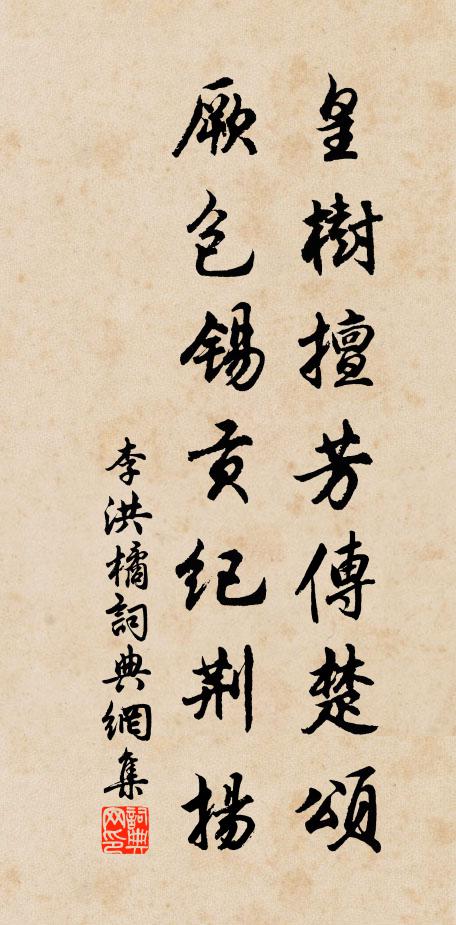 皇樹擅芳傳楚頌
厥包錫貢紀荆揚
李洪橘詞典網集
詞典网印